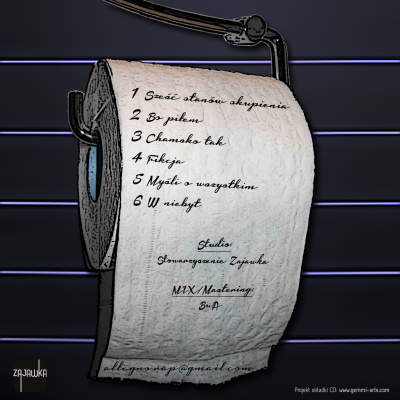 1 Sześć stanów skupienia
2 Bo piłem
3 Chamsko tak
4 Fikcja
5 Myśli o wszystkim
6 W niebyt
Studio
Stowarzyszenie Zajawka
MIX/Mastering
SuA
allegnorap@gmail.com
ZAJAWKA
Projekt okładki CD: www.gemmi-arts.com